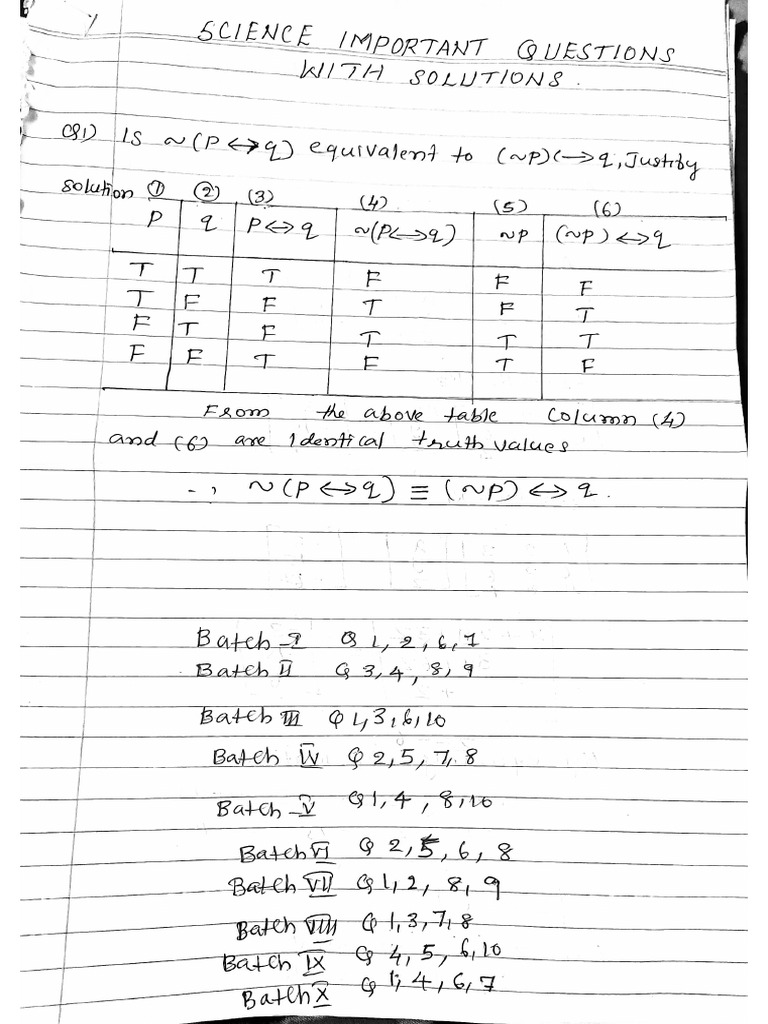 SCIENCE IMPORTANT QUESTIONS
WITH SOLUTIONS.
Q1) Is ~(P↔q) equivalent to (~P)↔q, Justify
solution ① ② (3) (4) (5) (6)
P q P↔q ~(P↔q) ~P (~P)↔q
T T T F F F
T F F T F T
F T F T T T
F F T F T F
From the above table column (4)
and (6) are Identical truth values
∴, ~(P↔q) ≡ (~P)↔q.
Batch I Q 1, 2, 6, 7
Batch II Q 3, 4, 8, 9
Batch III Q 1, 3, 6, 10
Batch IV Q 2, 5, 7, 8
Batch V Q 1, 4, 8, 10
Batch VI Q 2, 5, 6, 8
Batch VII Q 1, 2, 8, 9
Batch VIII Q 1, 3, 7, 8
Batch IX Q 4, 5, 6, 10
Batch X Q 1, 4, 6, 7